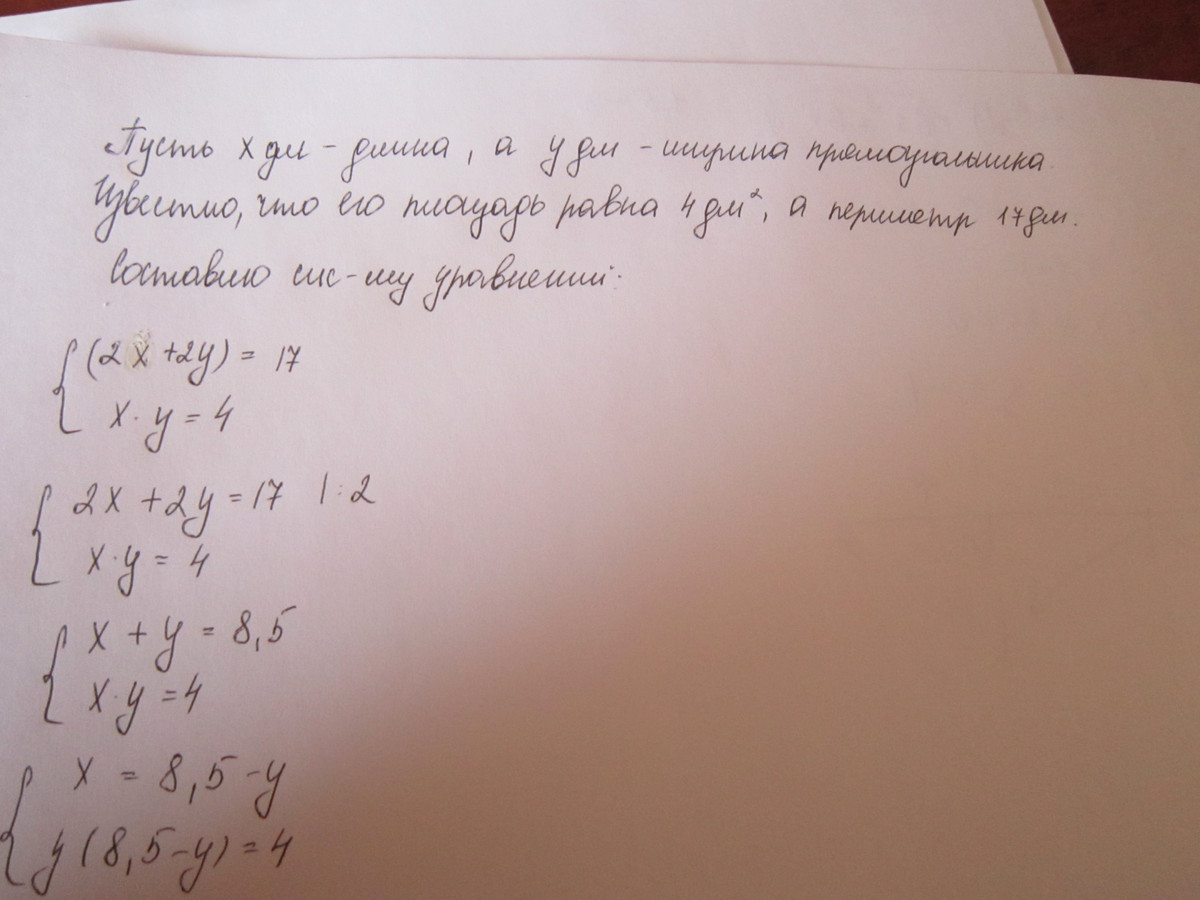 Пусть х дм - длина, а у дм - ширина прямоугольника.
Известно, что его площадь равна 4 дм², а периметр 17 дм.
Составлю сис-му уравнений:
(2x+2y) = 17
x·y = 4
2x+2y=17 |:2
x·y = 4
x + y = 8,5
x·y = 4
x = 8,5-y
y(8,5-y) = 4